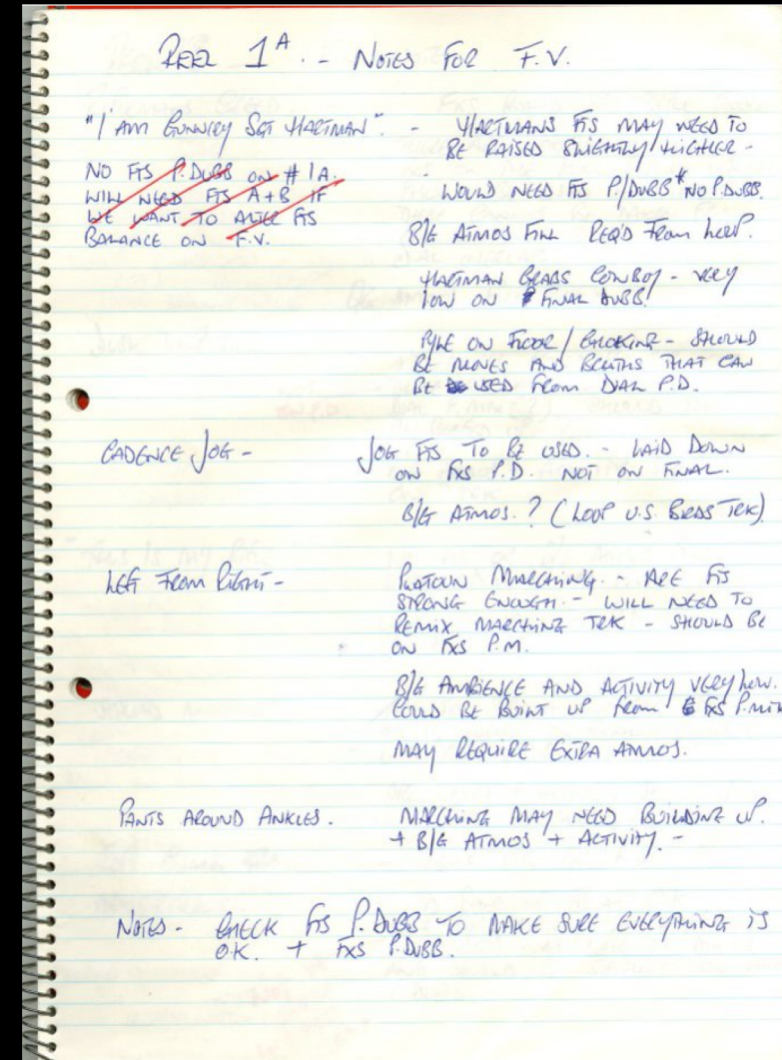 REEL 1A. - NOTES FOR F.V.
"I AM GUNNERY SGT HARTMAN". - HARTMANS FTS MAY NEED TO
BE RAISED SLIGHTLY HIGHER -
NO FTS P.DUBB ON #1A.
WILL NEED FTS A+B IF
WE WANT TO ALTER FTS
BALANCE ON F.V.
WOULD NEED FTS P/DUBB * NO P.DUBB.
B/G ATMOS FILL REQ'D FROM LOOP.
HARTMAN GRABS COWBOY - VERY
LOW ON FINAL DUBB!
PYLE ON FLOOR / CHOKING - SHOULD
BE MOVES AND BREATHS THAT CAN
BE USED FROM DIAL P.D.
CADENCE JOG - JOG FTS TO BE USED. - LAID DOWN
ON FXS P.D. NOT ON FINAL.
B/G ATMOS. ? (LOOP U.S. BIRDS TRK)
LEFT FROM RIGHT - PLATOON MARCHING. - ARE FTS
STRONG ENOUGH. - WILL NEED TO
REMIX MARCHING TRK - SHOULD BE
ON FXS P.M.
B/G AMBIENCE AND ACTIVITY VERY LOW.
COULD BE BUILT UP FROM FXS P.MIX
MAY REQUIRE EXTRA ATMOS.
PANTS AROUND ANKLES. MARCHING MAY NEED BUILDING UP.
+ B/G ATMOS + ACTIVITY. -
NOTES - CHECK FTS P.DUBB TO MAKE SURE EVERYTHING IS
O.K. + FXS P.DUBB.